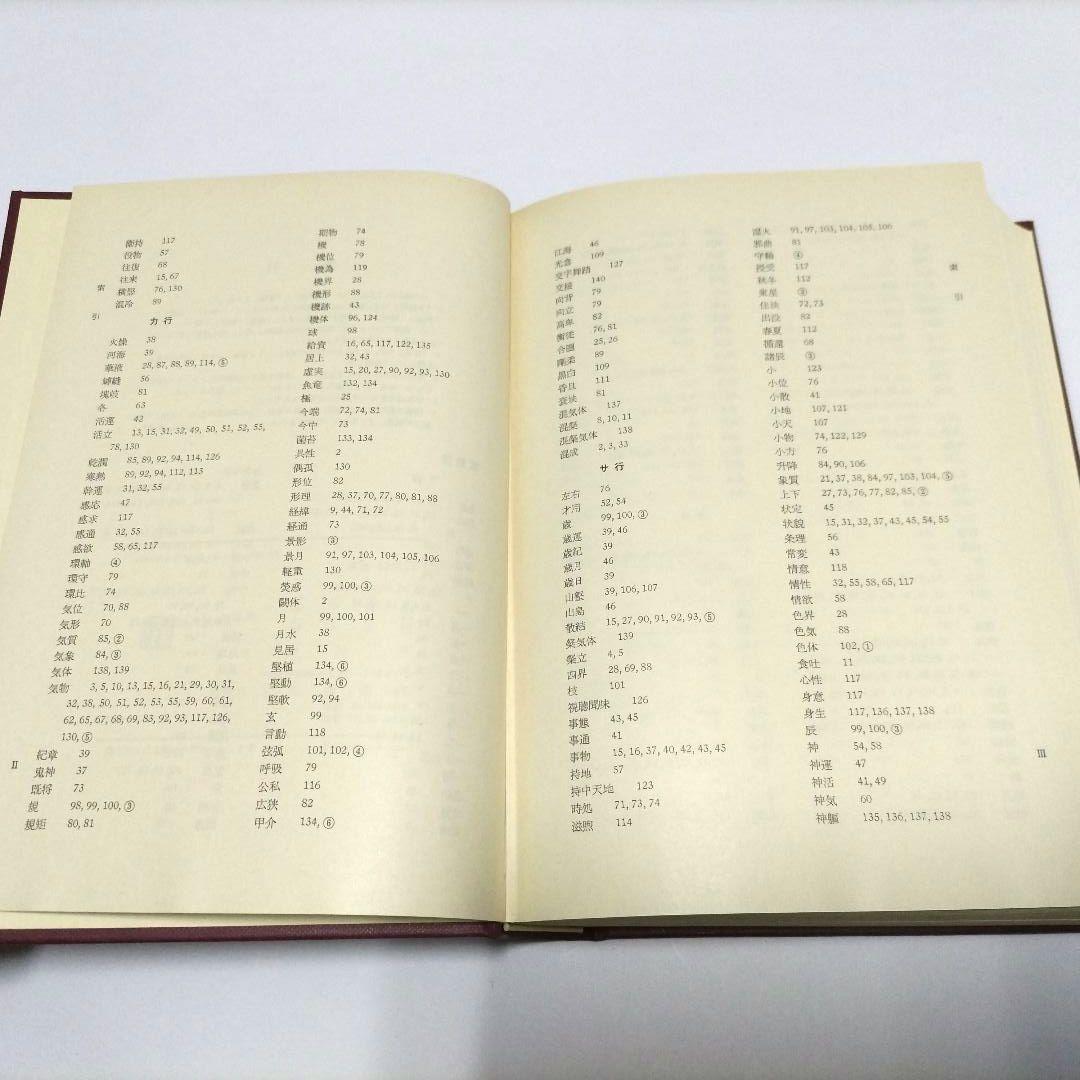 索引
衝持 117
役物 57
往復 68
往来 15, 67
横影 76, 130
混冷 89
カ行
火燥 38
河海 39
華液 28, 87, 88, 89, 114, ⑤
縛縫 56
塊岐 81
各 63
活運 42
活立 13, 15, 31, 32, 49, 50, 51, 52, 55,
78, 130
乾潤 85, 89, 92, 94, 114, 126
寒熱 89, 92, 94, 112, 113
幹運 31, 32, 55
感応 47
感求 117
感通 32, 55
感欲 58, 65, 117
環軸 ④
環守 79
環比 74
気位 70, 88
気形 70
気質 85, ②
気象 84, ③
気体 138, 139
気物 3, 5, 10, 13, 15, 16, 21, 29, 30, 31,
32, 38, 50, 51, 52, 53, 55, 59, 60, 61,
62, 65, 67, 68, 69, 83, 92, 93, 117, 126,
130, ⑤
紀章 39
鬼神 37
既将 73
規 98, 99, 100, ③
規矩 80, 81
II
期物 74
機 78
機位 79
機為 119
機界 28
機形 88
機跡 43
機体 96, 124
球 98
給資 16, 65, 117, 122, 135
居上 32, 43
虚実 15, 20, 27, 90, 92, 93, 130
魚竜 132, 134
極 25
今端 72, 74, 81
今中 73
菌苔 133, 134
具性 2
偶孤 130
形位 82
形理 28, 37, 70, 77, 80, 81, 88
経緯 9, 44, 71, 72
経通 73
景影 ③
景月 91, 97, 103, 104, 105, 106
軽重 130
熒惑 99, 100, ③
闕体 2
月 99, 100, 101
月水 38
見居 15
堅植 134, ⑥
堅動 134, ⑥
堅軟 92, 94
玄 99
言動 118
弦弧 101, 102, ④
呼吸 79
公私 116
広狭 82
甲介 134, ⑥
江海 46
光食 109
交字舞踏 127
交接 140
向背 79
向立 79
高卑 82
衡従 76, 81
合體 25, 26
剛柔 89
黒白 109
香臭 111
袞埃 81
混気体 137
混粲 8, 10, 11
混粲気体 138
混成 2, 3, 33
サ行
左右 76
才用 52, 54
歳 99, 100, ③
歳運 39, 46
歳紀 39
歳月 46
歳日 39
山壑 39, 106, 107
山島 46
散結 15, 27, 90, 91, 92, 93, ⑤
粲気体 139
粲立 4, 5
四界 28, 69, 88
枝 101
視聴聞味 126
事態 43, 45
事通 41
事物 15, 16, 37, 40, 42, 43, 45
持地 57
持中天地 123
時処 71, 73, 74
滋煦 114
湿火 91, 97, 103, 104, 105, 106
邪曲 81
守軸 ④
授受 117
秋冬 112
衆星 ③
住法 72, 73
出没 82
春夏 112
循還 68
諸辰 ③
小 123
小位 76
小散 41
小地 107, 121
小天 107
小物 74, 122, 129
小力 76
升降 84, 90, 106
象質 21, 37, 38, 84, 97, 103, 104, ⑤
上下 27, 73, 76, 77, 82, 85, ②
状定 45
状貌 15, 31, 32, 37, 43, 45, 54, 55
条理 56
常変 43
情意 118
情性 32, 55, 58, 65, 117
情欲 58
色界 28
色気 88
色体 102, ①
食吐 11
心性 117
身意 117
身生 117, 136, 137, 138
辰 99, 100, ③
神 54, 58
神運 47
神活 41, 49
神気 60
神軀 135, 136, 137, 138
索引
III